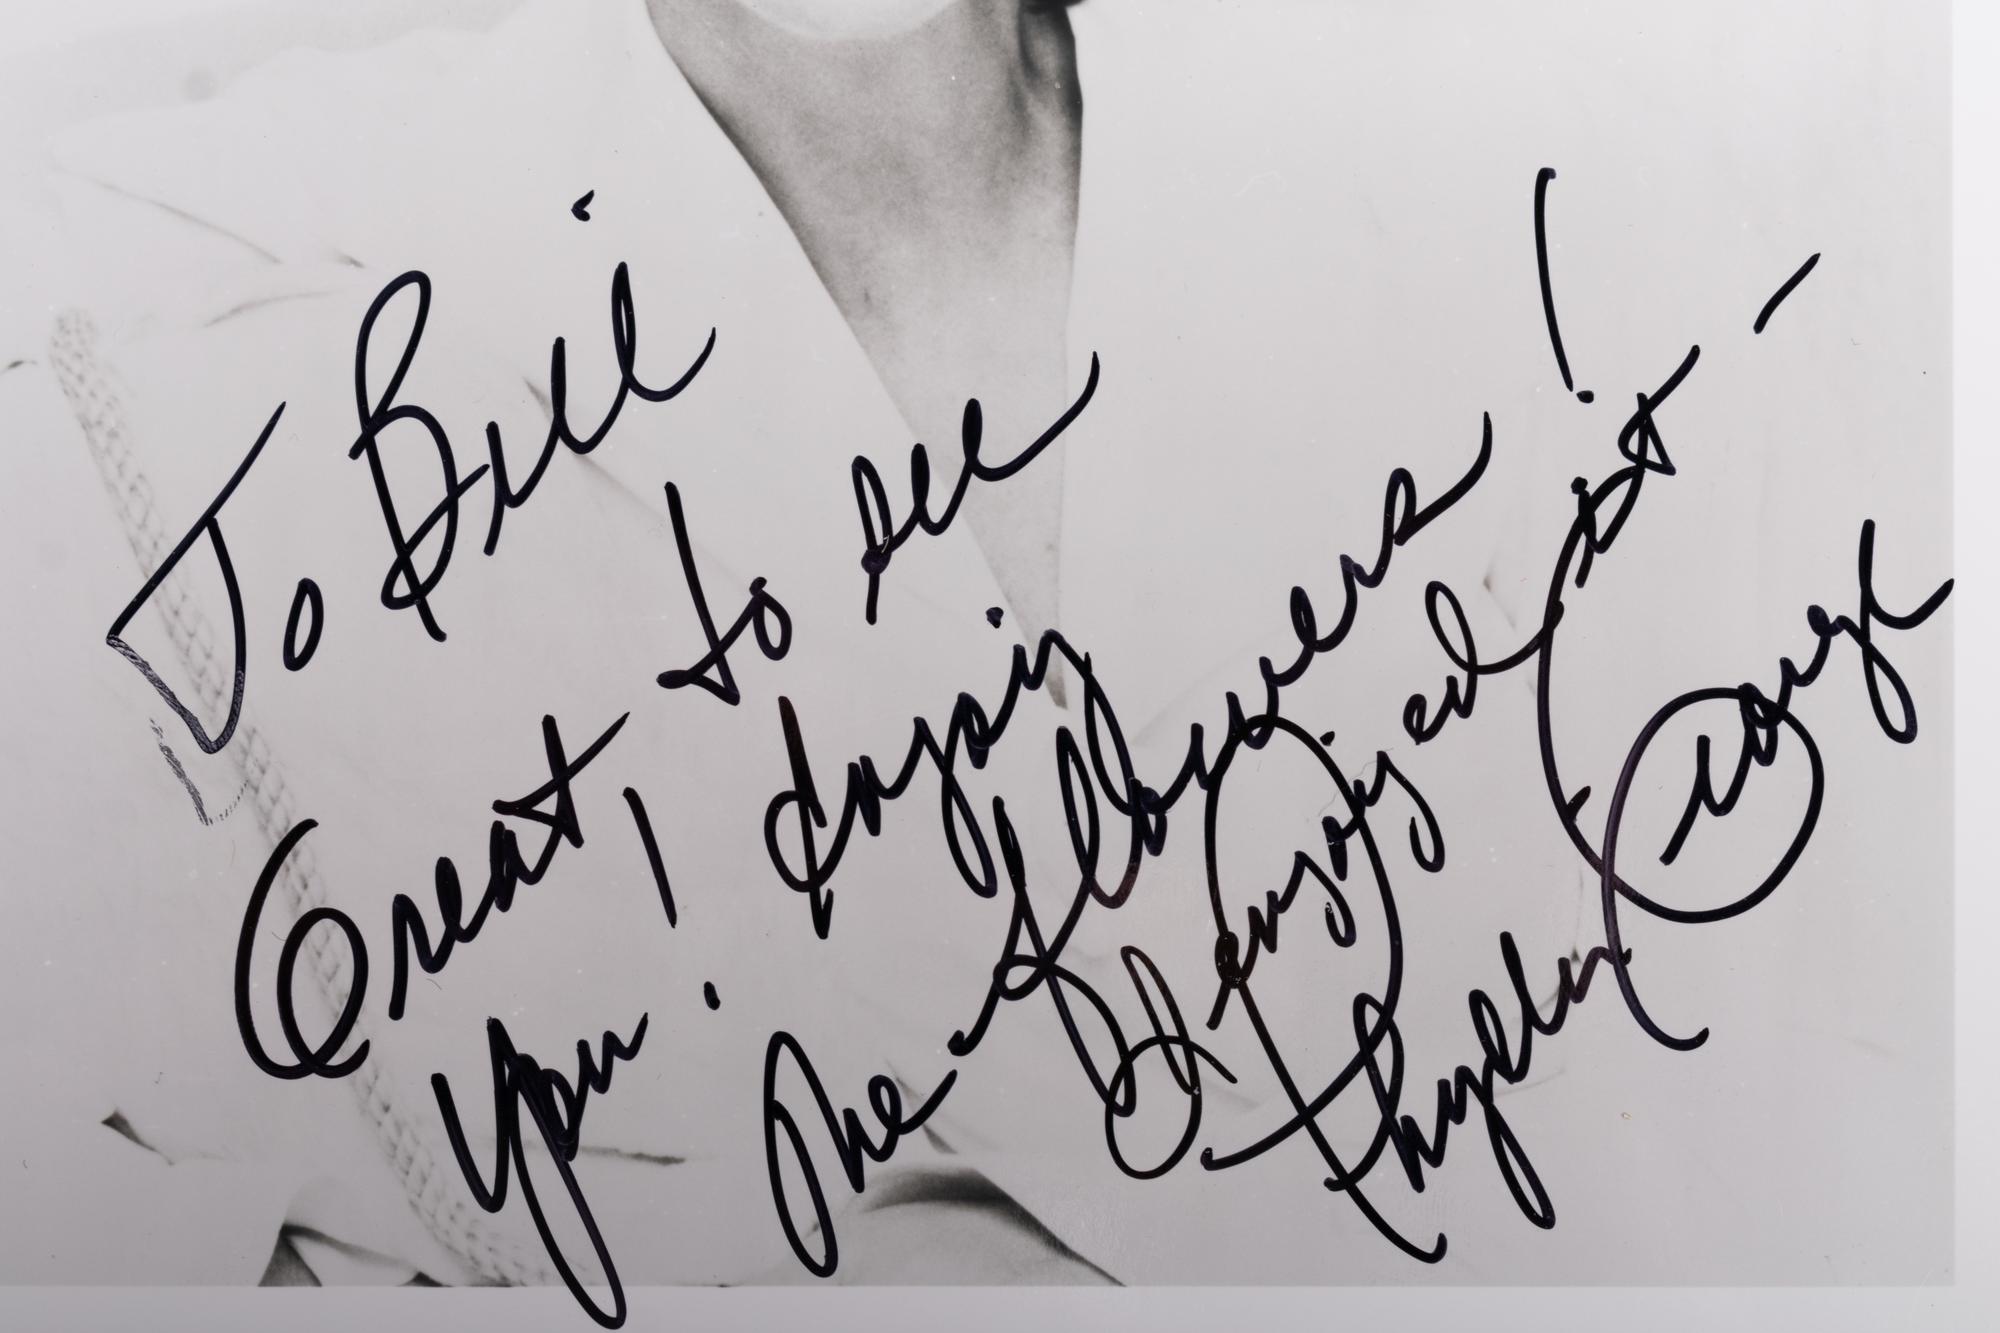 To Bill
Great, to see
you! Enjoy
The flowers!
I enjoyed it -
Phyllis George